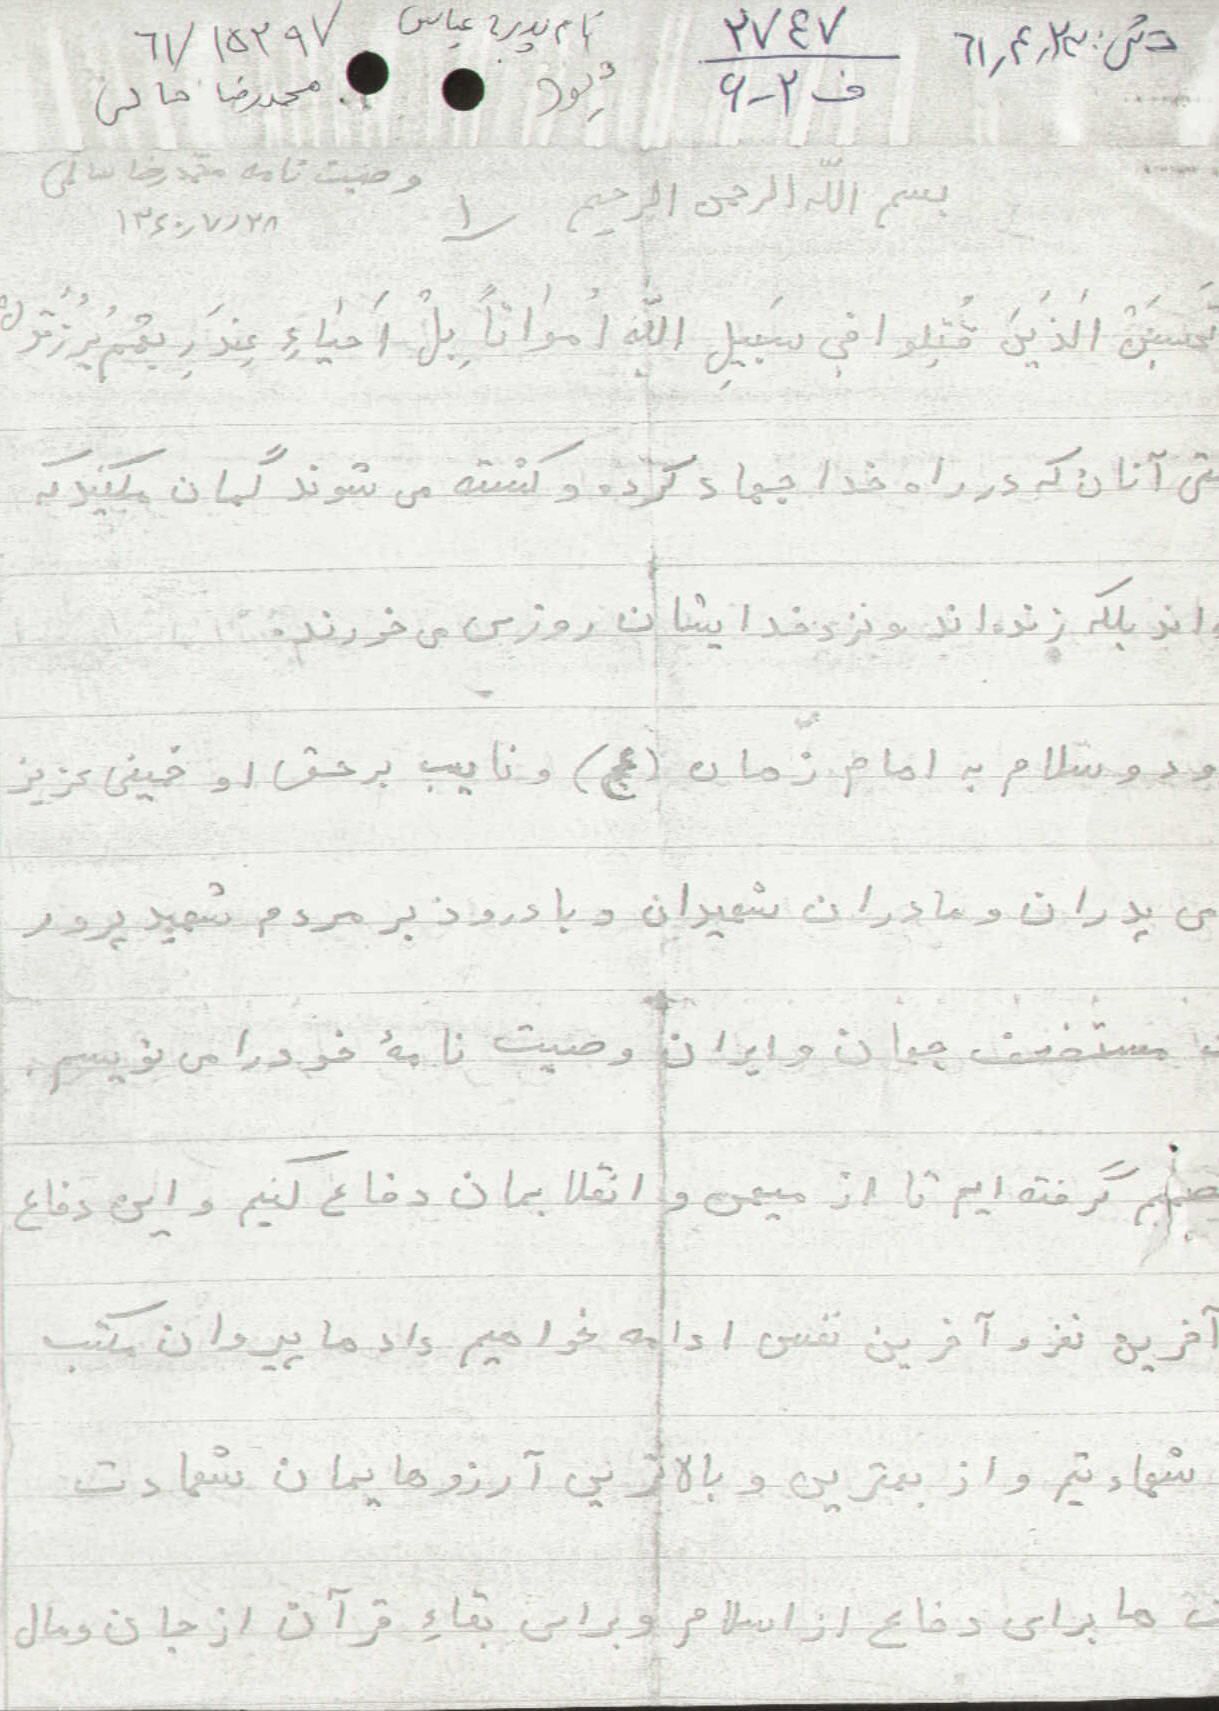 نام پدر: عباس
۶۱/۱۵۲۹۷
۲۷۴۷
۶۱٫۴٫۲۳
ف ۲-۶
محمدرضا
وصیت نامه محمدرضا
بسم اللّه الرحمن الرحیم
۱
۱۳۶۰٫۷٫۲۸
تَحسَبَنَّ الَذینَ قُتِلوا فی سَبیلِ اللّهِ اَمواتاً بَلْ اَحیاءِ عِندَ رَبِهِمْ یُرزَقُون
آنان که در راه خدا جهاد کرده و کشته می شوند گمان مکنید که
اند بلکه زنده اند و نزد خدایشان روزی می خورند.
ود و سلام به امام زمان (عج) و نایب بر حق او خمینی عزیز
می پدران و مادران شهیدان و با درود بر مردم شهید پرور
مستضعف جهان و ایران وصیت نامۀ خود را می نویسم.
گرفته ایم تا از میهن و انقلابمان دفاع کنیم و این دفاع
آخرین نفر و آخرین نفس ادامه خواهیم داد ما پیروان مکتب
شهادتیم و از بهترین و بالاترین آرزوهایمان شهادت
ما برای دفاع از اسلام و برای بقاءِ قرآن از جان و مال